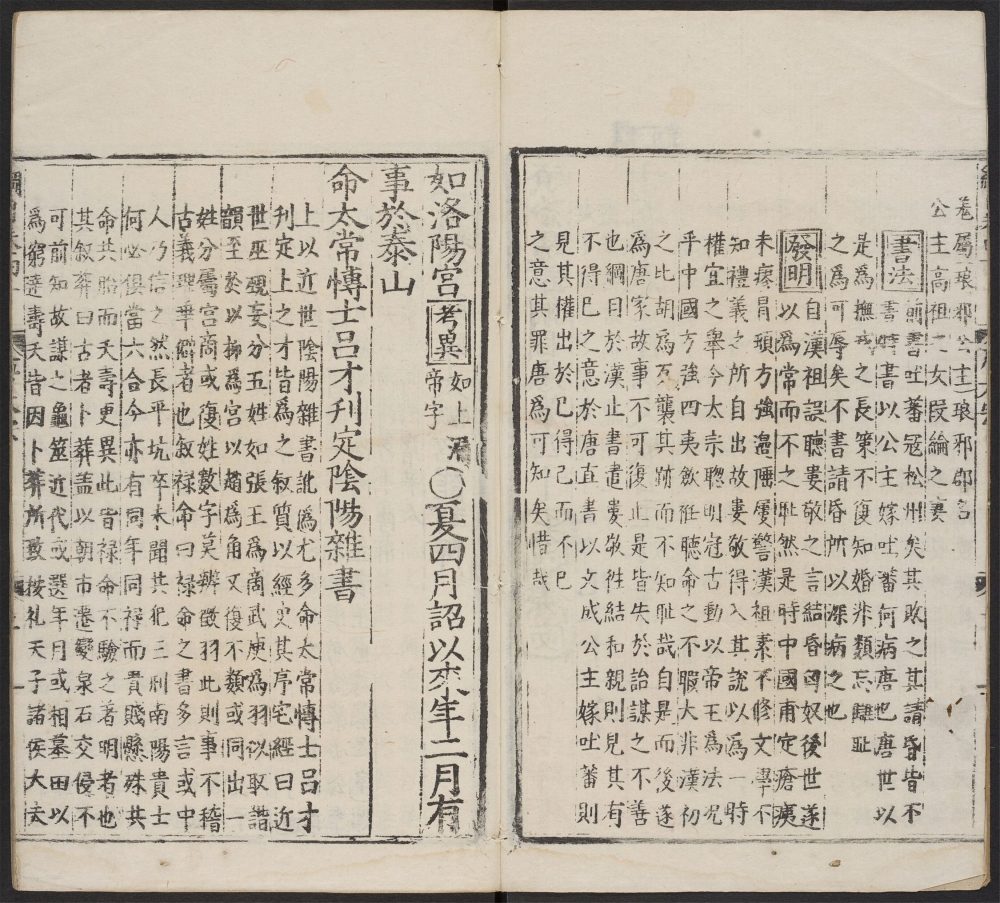 卷屬琅邪公主琅邪郡名
公主高祖之女段綸之妻
書法 前書吐蕃寇松州矣其敗之其請昏皆不
書特書以公主嫁吐蕃何病唐也唐世以
是為撫戎之長策不復知婚非類忘讎耻
之為可辱矣不書請昏所以深病之也
發明 自漢祖誤聽婁敬之言結昏匈奴後世遂
以為常而不之耻然是時中國甫定瘡痍
未瘳冒頓方強邉陲屢警漢祖素不修文學不
知禮義之所自出故婁敬得入其說以為一時
權宜之舉今太宗聰明冠古動以帝王為法况
平中國方強四夷歛衽聽命之不暇大非漢初
之比胡為乎襲其跡而不知耻哉自是而後遂
為唐家故事不可復止是皆失於詒謀之不善
也綱目於漢止書遣婁敬徃結和親則見其有
不得已之意於唐直書以文成公主嫁吐蕃則
見其權出於已得已而不已
之意其罪唐為可知矣惜哉
如洛陽宫 考異 如上漏帝字 ○夏四月詔以來年二月有
事於泰山
命太常愽士吕才刋定陰陽雜書
上以近世陰陽雜書訛偽尤多命太常愽士吕才
刋定上之才皆為之叙質以經史其序宅經曰近
世巫覡妄分五姓如張王為商武庚為羽似取諧
韻至於以柳為宫以趙為角又復不䫫或同出一
姓分屬宫商或復姓數字莫辨徵羽此則事不稽
古義理乖僻者也叙禄命曰禄命之書多言或中
人乃信之然長平坑卒未聞共犯三刑南陽貴士
何必俱當六合今亦有同年同禄而貴賤懸殊共
命共胎而夭壽更異此皆禄命不驗之著明者也
其叙葬曰古者卜葬盖以朝市遷變泉石交侵不
可前知故謀之龜筮近代或選年月或相墓田以
為窮逹壽夭皆因卜葬所致按礼天子諸侯大夫